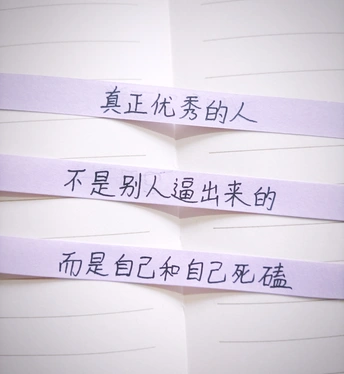 真正优秀的人
不是别人逼出来的
而是自己和自己死磕